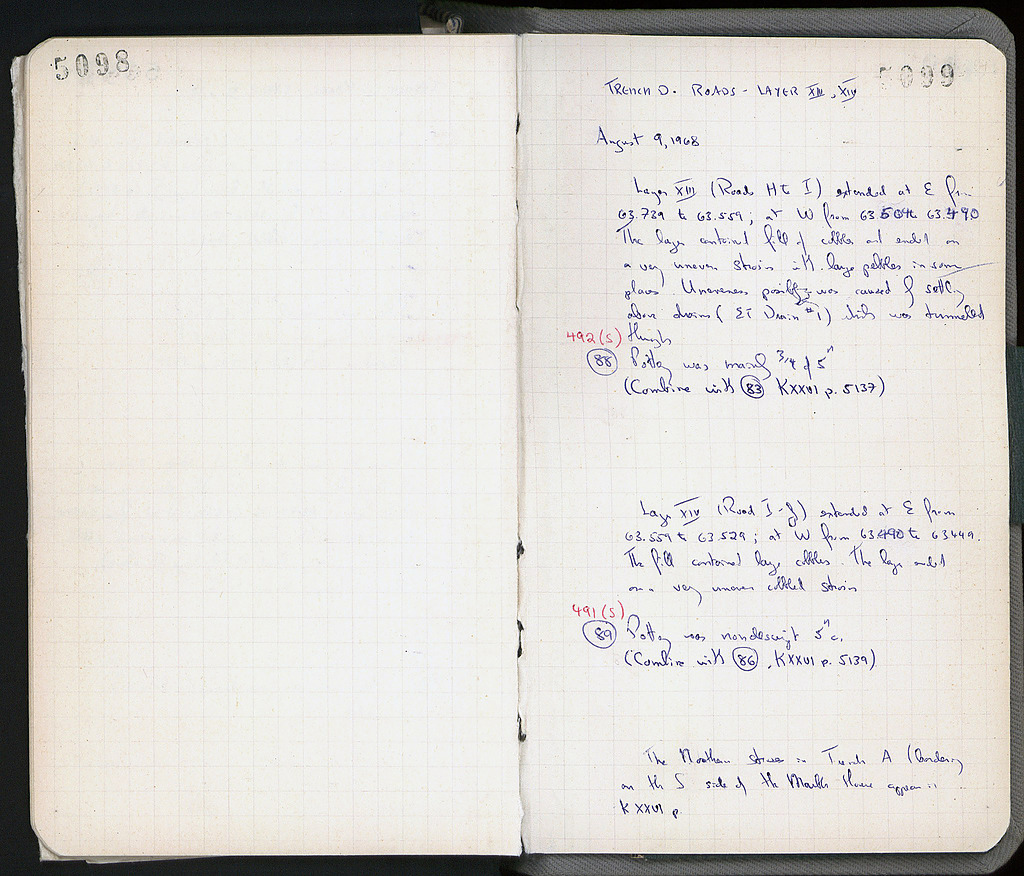 5098
5099
TRENCH D. ROADS - LAYER XIII, XIV
August 9, 1968
Layer XIII (Roads H to I) extended at E from
63.739 to 63.559; at W from 63.504 to 63.490
The layer contained fill of cobbles and ended on
a very uneven strosis with large pebbles in some
places. Unevenness possibly was caused by settling
above drains (EI Drain #1) which was tunnelled
492(S) through
88 Pottery was mainly 3/4 of 5"
(Combine with 83 KXXVI p. 5137)
Layer XIV (Road I-J) extended at E from
63.559 to 63.529; at W from 63.490 to 63449.
The fill contained large cobbles. The layer ended
on a very uneven cobbled strosis
491(S)
89 Pottery was nondescript 5" c.
(Combine with 86, KXXVI p. 5139)
The Northern in Trench A (bordering
on the S side of the Marble House appear in
K XXVI p.